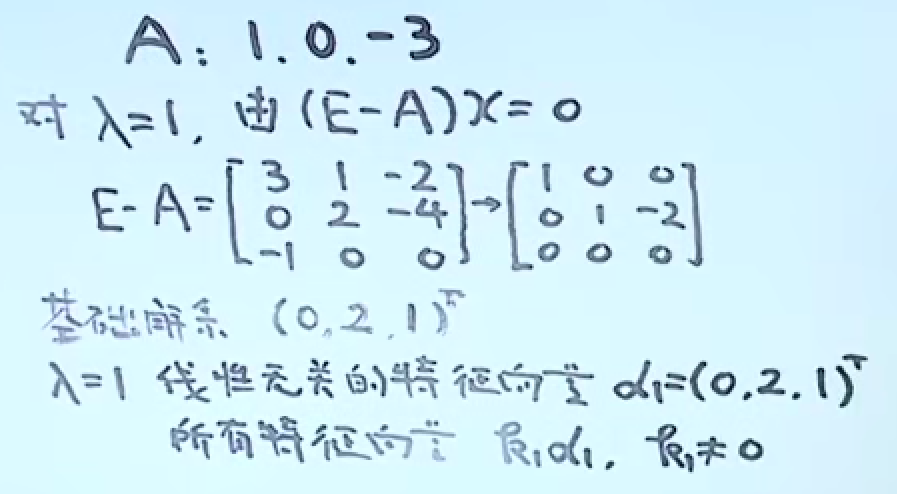 A: 1. 0. -3
对 λ=1, 由 (E-A)x=0
E-A=[3 1 -2; 0 2 -4; -1 0 0]→[1 0 0; 0 1 -2; 0 0 0]
基础解系 (0,2,1)ᵀ
λ=1 线性无关的特征向量 α₁=(0,2,1)ᵀ
所有特征向量 k₁α₁, k₁≠0